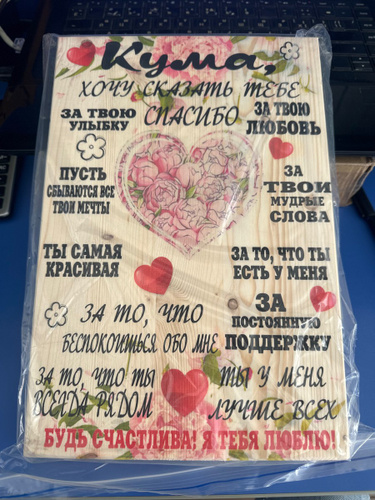 Кума,
ХОЧУ СКАЗАТЬ ТЕБЕ
СПАСИБО
ЗА ТВОЮ
УЛЫБКУ
ЗА ТВОЮ
ЛЮБОВЬ
ПУСТЬ
СБЫВАЮТСЯ ВСЕ
ТВОИ МЕЧТЫ
ЗА
ТВОИ
МУДРЫЕ
СЛОВА
ТЫ САМАЯ
КРАСИВАЯ
ЗА ТО, ЧТО ТЫ
ЕСТЬ У МЕНЯ
ЗА ТО, ЧТО
БЕСПОКОИШЬСЯ ОБО МНЕ
ЗА
ПОСТОЯННУЮ
ПОДДЕРЖКУ
ЗА ТО, ЧТО ТЫ
ВСЕГДА РЯДОМ
ТЫ У МЕНЯ
ЛУЧШЕ ВСЕХ
БУДЬ СЧАСТЛИВА! Я ТЕБЯ ЛЮБЛЮ!